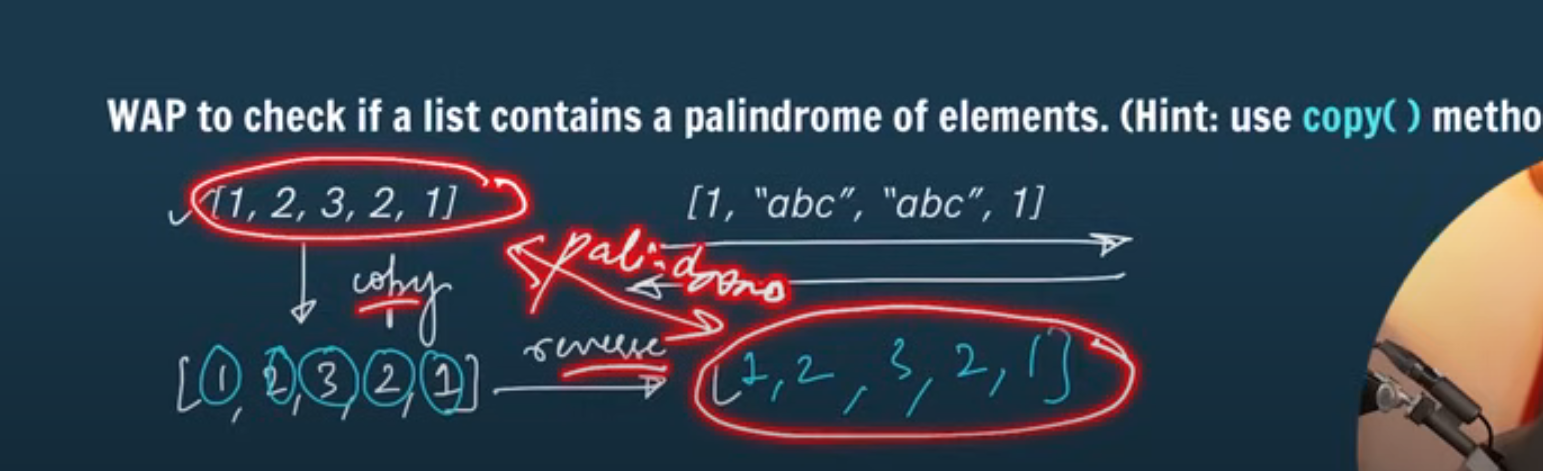 WAP to check if a list contains a palindrome of elements. (Hint: use copy( ) metho
[1, 2, 3, 2, 1] [1, "abc", "abc", 1]
palindrome
copy
reverse
[1, 2, 3, 2, 1] [1, 2, 3, 2, 1]